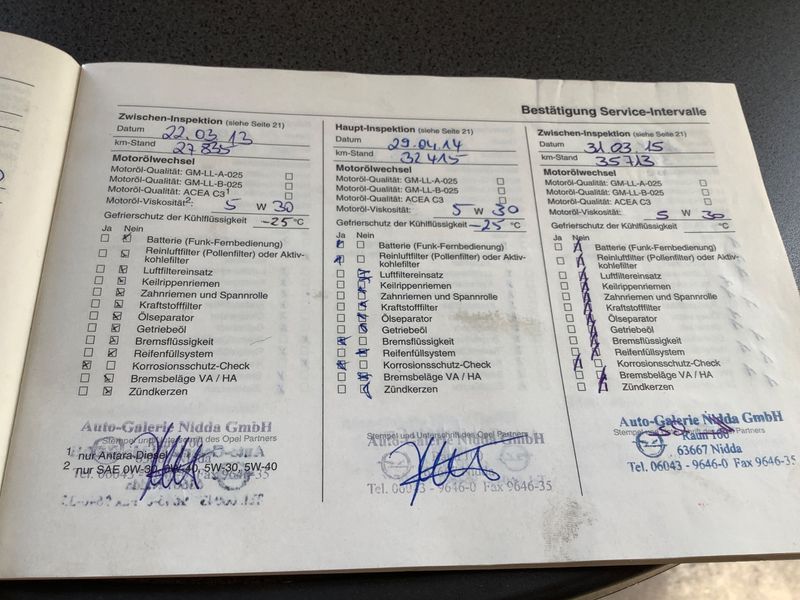 Bestätigung Service-Intervalle
Zwischen-Inspektion (siehe Seite 21)
Datum 22.03.13
km-Stand 27835
Motorölwechsel
Motoröl-Qualität: GM-LL-A-025
Motoröl-Qualität: GM-LL-B-025
Motoröl-Qualität: ACEA C3¹
Motoröl-Viskosität²: 5 W 30
Gefrierschutz der Kühlflüssigkeit -25 °C
Ja Nein
Batterie (Funk-Fernbedienung)
Reinluftfilter (Pollenfilter) oder Aktiv-
kohlefilter
Luftfiltereinsatz
Keilrippenriemen
Zahnriemen und Spannrolle
Kraftstofffilter
Ölseparator
Getriebeöl
Bremsflüssigkeit
Reifenfüllsystem
Korrosionsschutz-Check
Bremsbeläge VA / HA
Zündkerzen
Auto-Galerie Nidda GmbH
Stempel und Unterschrift des Opel Partners
¹ nur Antara-Diesel
² nur SAE 0W-30, 0W-40, 5W-30, 5W-40
Haupt-Inspektion (siehe Seite 21)
Datum 29.04.14
km-Stand 32415
Motorölwechsel
Motoröl-Qualität: GM-LL-A-025
Motoröl-Qualität: GM-LL-B-025
Motoröl-Qualität: ACEA C3
Motoröl-Viskosität: 5 W 30
Gefrierschutz der Kühlflüssigkeit -25 °C
Ja Nein
Batterie (Funk-Fernbedienung)
Reinluftfilter (Pollenfilter) oder Aktiv-
kohlefilter
Luftfiltereinsatz
Keilrippenriemen
Zahnriemen und Spannrolle
Kraftstofffilter
Ölseparator
Getriebeöl
Bremsflüssigkeit
Reifenfüllsystem
Korrosionsschutz-Check
Bremsbeläge VA / HA
Zündkerzen
Stempel und Unterschrift des Opel Partners
Tel. 06043 - 9646-0 Fax 9646-35
Zwischen-Inspektion (siehe Seite 21)
Datum 31.03.15
km-Stand 35713
Motorölwechsel
Motoröl-Qualität: GM-LL-A-025
Motoröl-Qualität: GM-LL-B-025
Motoröl-Qualität: ACEA C3
Motoröl-Viskosität: 5 W 30
Gefrierschutz der Kühlflüssigkeit °C
Ja Nein
Batterie (Funk-Fernbedienung)
Reinluftfilter (Pollenfilter) oder Aktiv-
kohlefilter
Luftfiltereinsatz
Keilrippenriemen
Zahnriemen und Spannrolle
Kraftstofffilter
Ölseparator
Getriebeöl
Bremsflüssigkeit
Reifenfüllsystem
Korrosionsschutz-Check
Bremsbeläge VA / HA
Zündkerzen
Auto-Galerie Nidda GmbH
Stempel und Unterschrift des Opel Partners
Raun 100
63667 Nidda
Tel. 06043 - 9646-0 Fax 9646-35